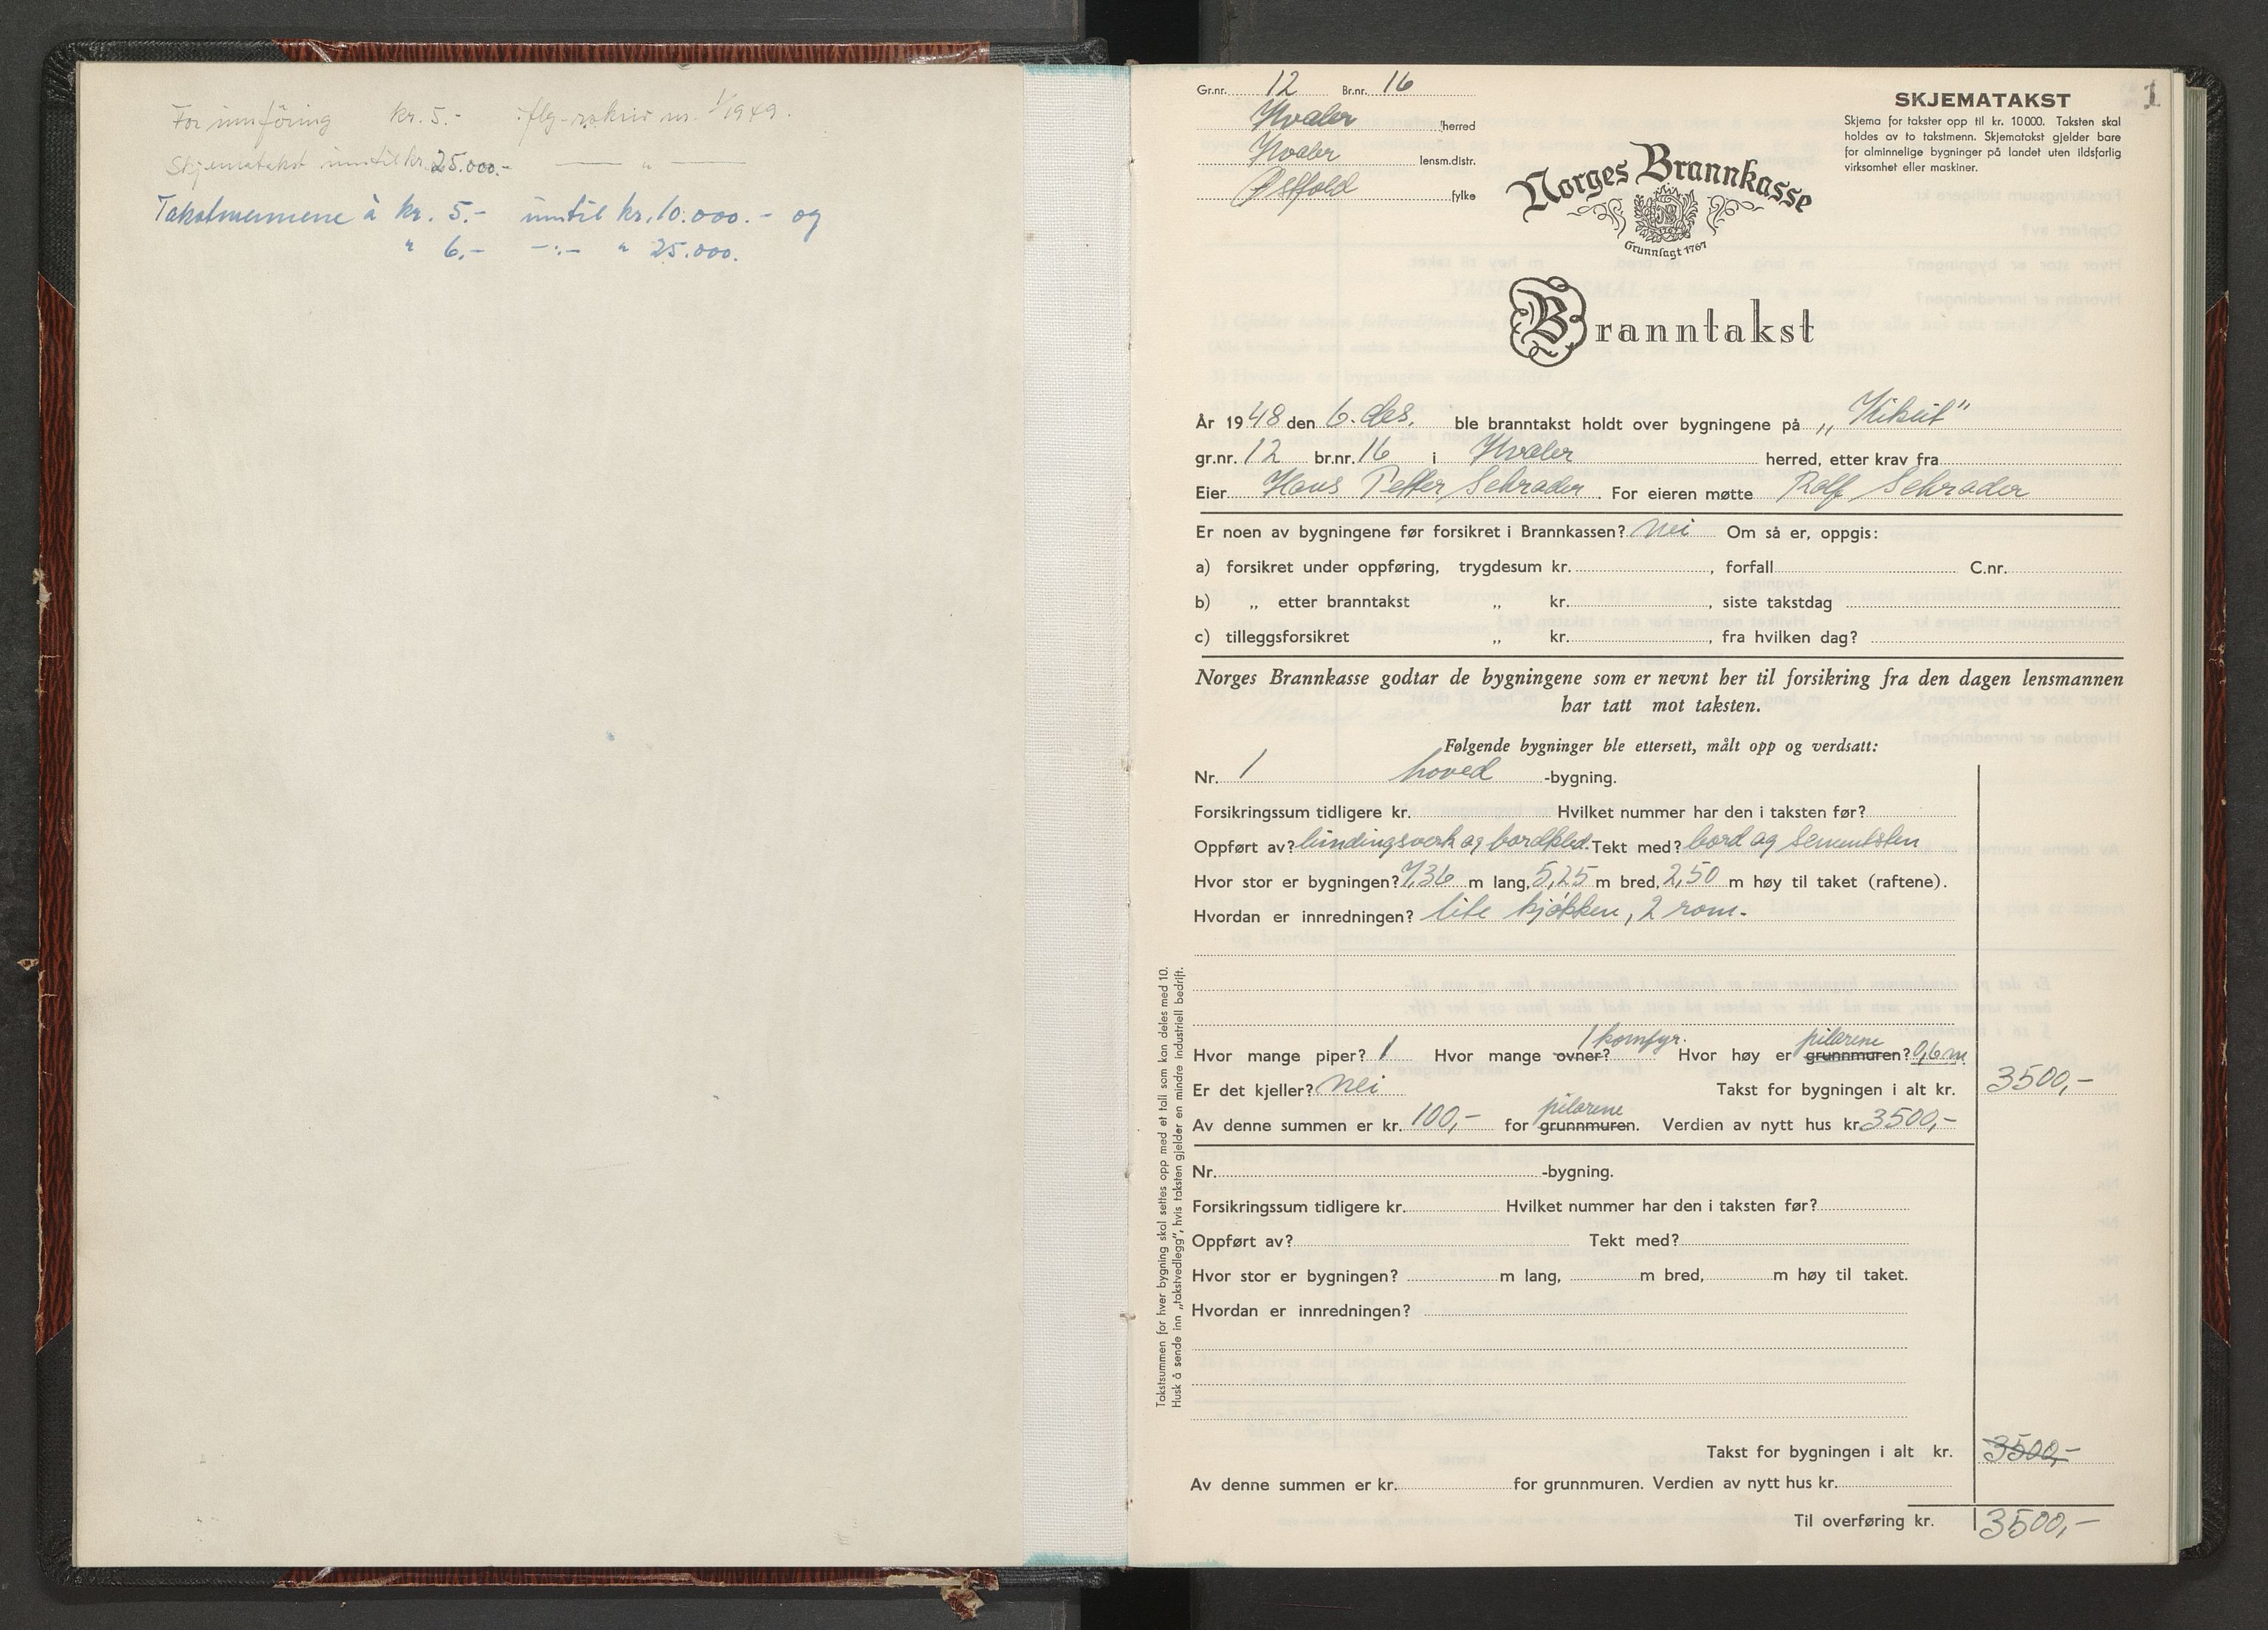 For innføring kr. 5.- iflg. rskriv nr. 1/1949.
Skjematakst inntil kr. 25.000.- — " —
Takstmennene à kr. 5.- inntil kr. 10.000.- og
" 6.- -:- " 25.000.
1
Gr.nr. 12 Br.nr. 16
Hvaler herred
Hvaler lensm.distr.
Østfold fylke
SKJEMATAKST
Skjema for takster opp til kr. 10 000. Taksten skal
holdes av to takstmenn. Skjematakst gjelder bare
for alminnelige bygninger på landet uten ildsfarlig
virksomhet eller maskiner.
Norges Brannkasse
Grunnlagt 1767
Branntakst
År 1948 den 6. des. ble branntakst holdt over bygningene på
gr.nr. 12 br.nr. 16 i Hvaler herred, etter krav fra
Eier Hans Petter Schrader. For eieren møtte Rolf Schrader
Er noen av bygningene før forsikret i Brannkassen? nei Om så er, oppgis:
a) forsikret under oppføring, trygdesum kr. , forfall C.nr.
b) „ etter branntakst „ kr. , siste takstdag
c) tilleggsforsikret „ kr. , fra hvilken dag?
Norges Brannkasse godtar de bygningene som er nevnt her til forsikring fra den dagen lensmannen
har tatt mot taksten.
Følgende bygninger ble ettersett, målt opp og verdsatt:
Nr. 1 hoved -bygning.
Forsikringssum tidligere kr. Hvilket nummer har den i taksten før?
Oppført av? bindingsverk og bordkled. Tekt med? bord og sementsten
Hvor stor er bygningen? 7,36 m lang, 5,25 m bred, 2,50 m høy til taket (raftene).
Hvordan er innredningen? lite kjøkken, 2 rom.
1 komfyr. pilarene
Hvor mange piper? 1 Hvor mange ovner? Hvor høy er grunnmuren? 0,6 m
Er det kjeller? nei Takst for bygningen i alt kr. 3500,-
pilarene
Av denne summen er kr. 100,- for grunnmuren. Verdien av nytt hus kr. 3500,-
Nr. -bygning.
Forsikringssum tidligere kr. Hvilket nummer har den i taksten før?
Oppført av? Tekt med?
Hvor stor er bygningen? m lang, m bred, m høy til taket.
Hvordan er innredningen?
Takst for bygningen i alt kr. 3500,-
Av denne summen er kr. for grunnmuren. Verdien av nytt hus kr.
Til overføring kr. 3500,-
Takstsummen for hver bygning skal settes opp med et tall som kan deles med 10.
Husk å sende inn „takstvedlegg", hvis taksten gjelder en mindre industriell bedrift.